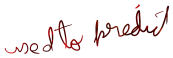 used to predict